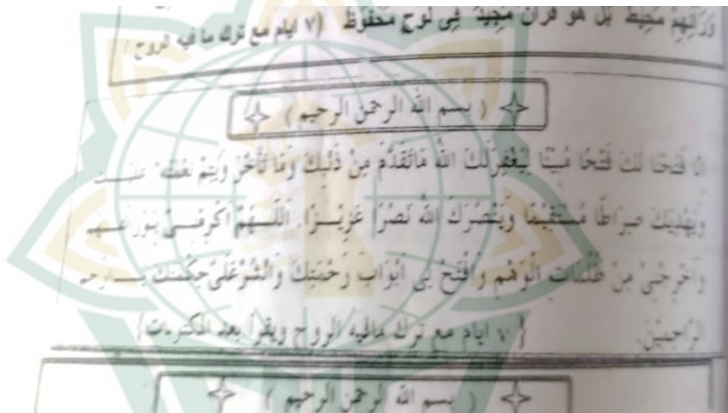 وَرَائِهِمْ مُحِيْطٌ بَلْ هُوَ قُرْآنٌ مَجِيْدٌ فِى لَوْحٍ مَحْفُوْظٍ (٧ ايام مع ترك ما فيه الروح)
( بسم الله الرحمن الرحيم )
فَتَحْنَا لَكَ فَتْحًا مُبِيْنًا لِيَغْفِرَلَكَ اللهُ مَاتَقَدَّمَ مِنْ ذَنْبِكَ وَمَا تَأَخَّرَ وَيُتِمَّ نِعْمَتَهُ عَلَيْكَ
وَيَهْدِيَكَ صِرَاطًا مُسْتَقِيْمًا وَيَنْصُرَكَ اللهُ نَصْرًا عَزِيْزًا. اَللّٰهُمَّ اَكْرِمْنِىْ بِنُوْرِ الفهم
وَاَخْرِجْنِىْ مِنْ ظُلُمَاتِ الْوَهْمِ وَافْتَحْ لِى اَبْوَابَ رَحْمَتِكَ وَانْشُرْعَلَىَّ حِكْمَتَكَ يـــاارحم
الرَّاحِمِيْنَ. { ٧ ايام مع ترك مافيه الروح ويقرأ بعد المكتوبات}
( بسم الله الرحمن الرحيم )